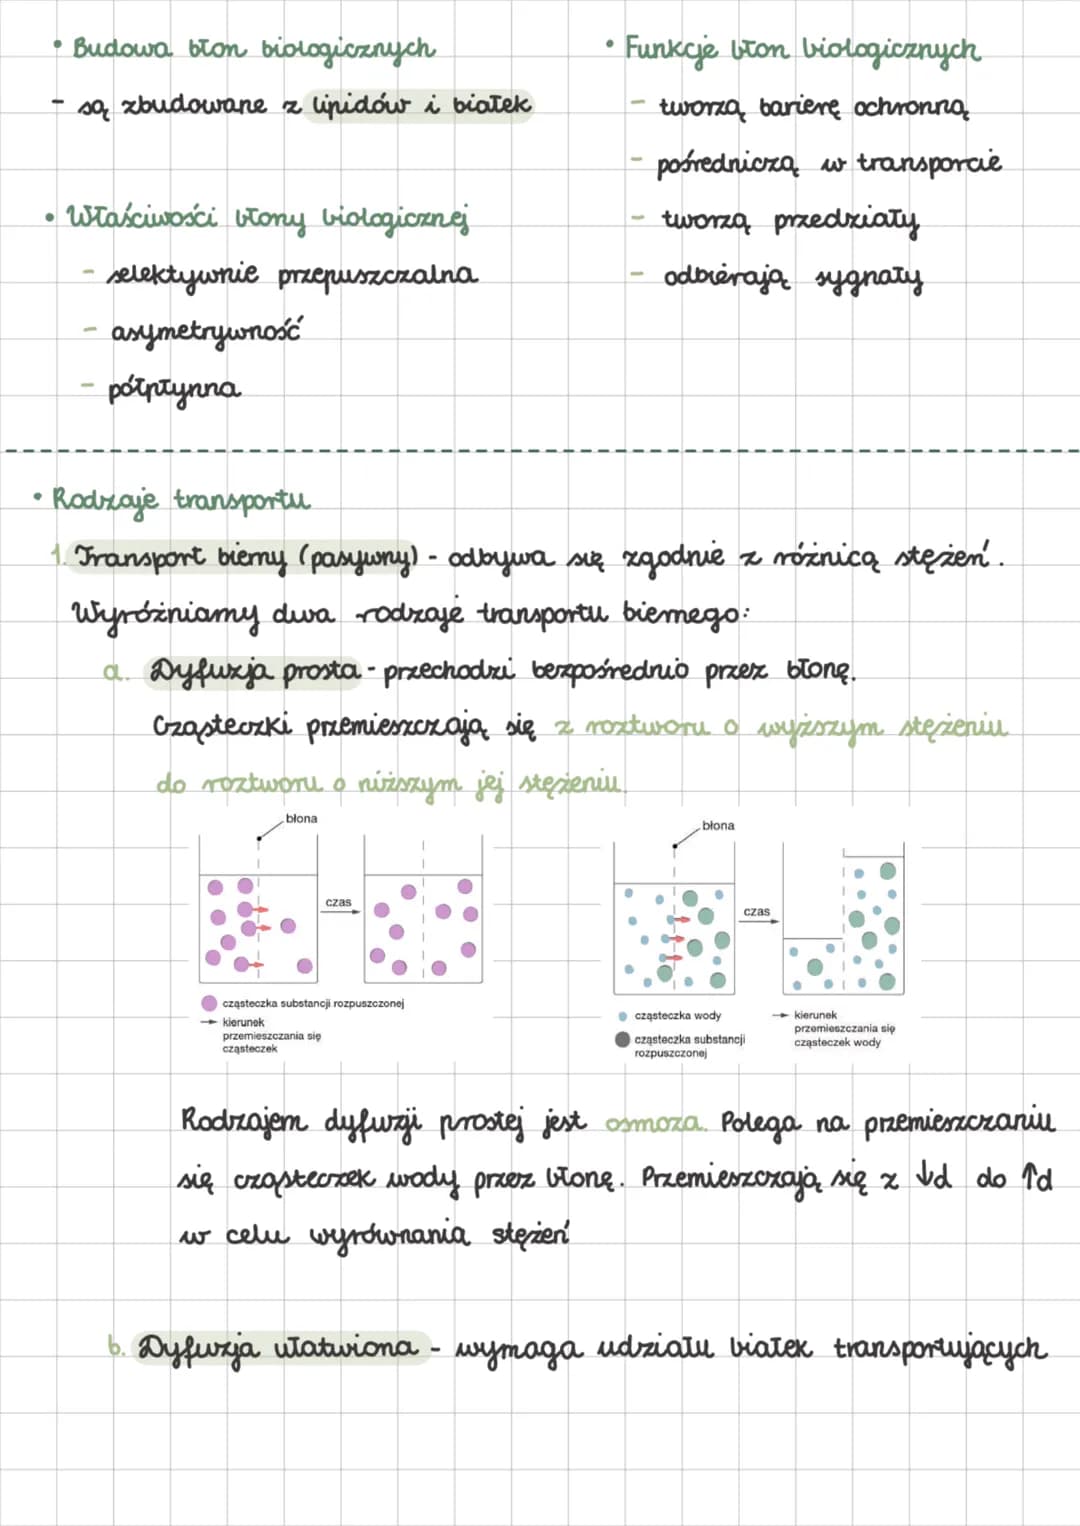 • Budowa błon biologicznych
- są zbudowane z lipidów i białek
• Właściwości błony biologicznej
- selektywnie przepuszczalna
- asymetrywność
- półpłynna
• Funkcje błon biologicznych
- tworzą barierę ochronną
- pośredniczą w transporcie
- tworzą przedziały
- odbierają sygnały
• Rodzaje transportu
1. Transport bierny (pasywny) - odbywa się zgodnie z różnicą stężeń.
Wyróżniamy dwa rodzaje transportu biernego:
a. Dyfuzja prosta - przechodzi bezpośrednio przez błonę.
Cząsteczki przemieszczają się z roztworu o wyższym stężeniu
do roztworu o niższym jej stężeniu.
błona
czas
cząsteczka substancji rozpuszczonej
kierunek
przemieszczania się
cząsteczek
błona
czas
cząsteczka wody
cząsteczka substancji
rozpuszczonej
kierunek
przemieszczania się
cząsteczek wody
Rodzajem dyfuzji prostej jest osmoza. Polega na przemieszczaniu
się cząsteczek wody przez błonę. Przemieszczają się z ↓d do ↑d
w celu wyrównania stężeń
b. Dyfuzja ułatwiona - wymaga udziału białek transportujących